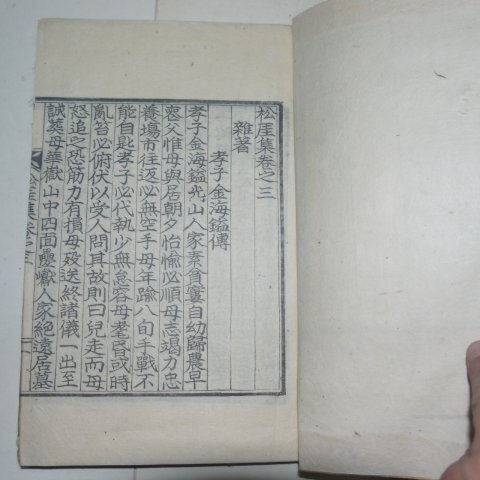 松厓集卷之三
雜著
孝子金海鎰傳
孝子金海鎰光山人家素貧窶自幼歸農早
喪父惟母與居朝夕怡愉必順母志竭力忠
養場市往返必無空手母年踰八旬手戰不
能自匙孝子必代執少無怠容母耄昏或時
亂笞必俯伏以受人問其故則曰兒走而母
怒追之恐筋力有損母歿送終諸儀一出至
誠葬母華嶽山中四面疊巘人家絶遠居墓
松厓集卷之三